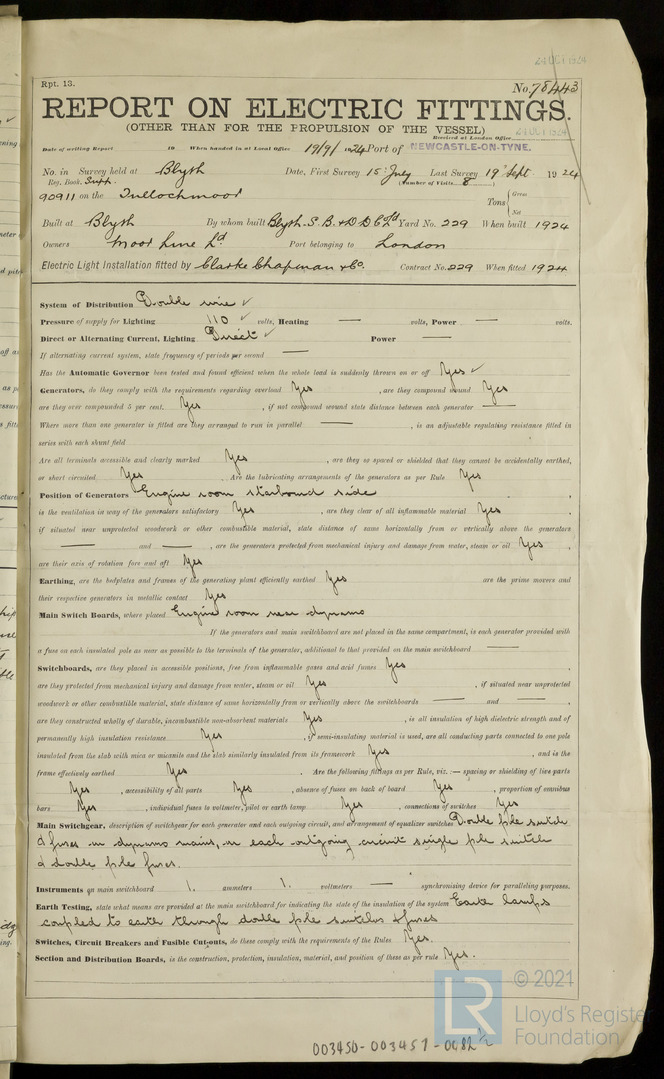 24 OCT 1924
Rpt. 13.
No. 78443
REPORT ON ELECTRIC FITTINGS.
(OTHER THAN FOR THE PROPULSION OF THE VESSEL)
24 OCT 1924
Received at London Office
Date of writing Report 19 When handed in at Local Office 19/9/ 1924 Port of NEWCASTLE-ON-TYNE.
No. in Survey held at Blyth Date, First Survey 15 July Last Survey 19 Sept. 1924
Reg. Book. Supp. (Number of Visits 8)
90911 on the Tullochmoor Tons { Gross Net
Built at Blyth By whom built Blyth S. B. & D D Co Ld Yard No. 229 When built 1924
Owners Moor Line Ld Port belonging to London
Electric Light Installation fitted by Clarke Chapman & Co. Contract No. 229 When fitted 1924
System of Distribution Double wire ✓
Pressure of supply for Lighting 110 ✓ volts, Heating — volts, Power — volts.
Direct or Alternating Current, Lighting Direct ✓ Power —
If alternating current system, state frequency of periods per second —
Has the Automatic Governor been tested and found efficient when the whole load is suddenly thrown on or off Yes ✓
Generators, do they comply with the requirements regarding overload Yes , are they compound wound Yes
are they over compounded 5 per cent. Yes , if not compound wound state distance between each generator —
Where more than one generator is fitted are they arranged to run in parallel — , is an adjustable regulating resistance fitted in
series with each shunt field
Are all terminals accessible and clearly marked Yes , are they so spaced or shielded that they cannot be accidentally earthed,
or short circuited Yes . Are the lubricating arrangements of the generators as per Rule Yes
Position of Generators Engine room starboard side
is the ventilation in way of the generators satisfactory Yes , are they clear of all inflammable material Yes ,
if situated near unprotected woodwork or other combustible material, state distance of same horizontally from or vertically above the generators
— and — , are the generators protected from mechanical injury and damage from water, steam or oil Yes ,
are their axis of rotation fore and aft Yes
Earthing, are the bedplates and frames of the generating plant efficiently earthed Yes are the prime movers and
their respective generators in metallic contact Yes
Main Switch Boards, where placed Engine room near dynamo
If the generators and main switchboard are not placed in the same compartment, is each generator provided with
a fuse on each insulated pole as near as possible to the terminals of the generator, additional to that provided on the main switchboard —
Switchboards, are they placed in accessible positions, free from inflammable gases and acid fumes Yes ,
are they protected from mechanical injury and damage from water, steam or oil Yes , if situated near unprotected
woodwork or other combustible material, state distance of same horizontally from or vertically above the switchboards — and — ,
are they constructed wholly of durable, incombustible non-absorbent materials Yes , is all insulation of high dielectric strength and of
permanently high insulation resistance Yes , if semi-insulating material is used, are all conducting parts connected to one pole
insulated from the slab with mica or micanite and the slab similarly insulated from its framework Yes , and is the
frame effectively earthed Yes . Are the following fittings as per Rule, viz. :— spacing or shielding of live parts
Yes , accessibility of all parts Yes , absence of fuses on back of board Yes , proportion of omnibus
bars Yes , individual fuses to voltmeter, pilot or earth lamp Yes , connections of switches Yes
Main Switchgear, description of switchgear for each generator and each outgoing circuit, and arrangement of equalizer switches Double pole switch
& fuses on dynamo mains, on each outgoing circuit single pole switch
& double pole fuses.
Instruments on main switchboard 1. ammeters 1. voltmeters — synchronising device for paralleling purposes.
Earth Testing, state what means are provided at the main switchboard for indicating the state of the insulation of the system Earth lamps
coupled to earth through double pole switches & fuses
Switches, Circuit Breakers and Fusible Cut-outs, do these comply with the requirements of the Rules Yes.
Section and Distribution Boards, is the construction, protection, insulation, material, and position of these as per rule Yes.
LR
© 2021
Lloyd's Register
Foundation
003450-003457-0082 1/2